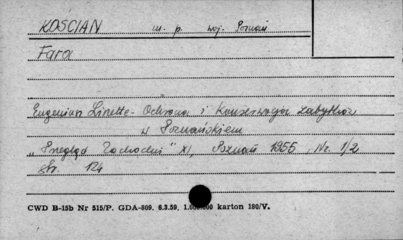 KOŚCIAN m. p. woj. Poznań
Fara
Eugenius Linette - Ochrona i Konserwacja zabytków
w Poznańskiem
"Przegląd Zachodni" XI, Poznań 1955, Nr. 1/2
str. 124
CWD B-15b Nr 515/P. GDA-809. 6.3.59. karton 180/V.